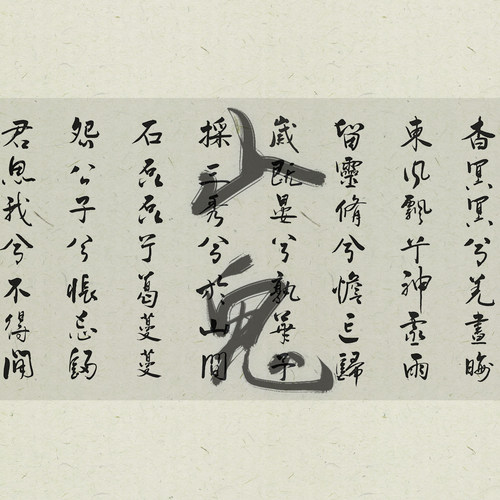 杳冥冥兮羌晝晦
東風飄兮神靈雨
留靈脩兮憺忘歸
歲既晏兮孰華予
採三秀兮於山間
石磊磊兮葛蔓蔓
怨公子兮悵忘歸
君思我兮不得閒
山鬼